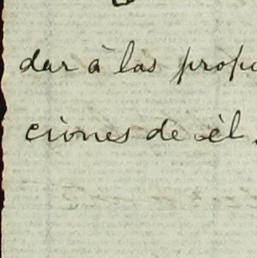 dar á las propo
ciones de él.